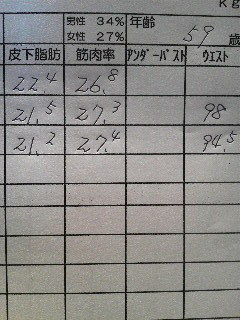 kg
男性 34% 年齢
女性 27% 59 歳
皮下脂肪 筋肉率 ｱﾝﾀﾞｰﾊﾞｽﾄ ｳｴｽﾄ
22.4 26.8
21.5 27.3 98
21.2 27.4 94.5